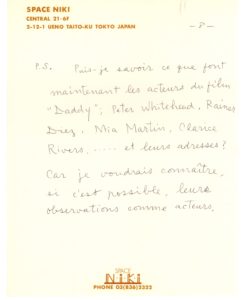 SPACE NIKI
CENTRAL 21-6F
2-12-1 UENO TAITO-KU TOKYO JAPAN
-8-
P.S. Puis-je savoir ce que font
maintenant les acteurs du film
"Daddy"; Peter Whitehead, Rainer
Diez, Mia Martin, Clarice
Rivers, ..... et leurs adresses?
Car je voudrais connaître,
si c'est possible, leurs
observations comme acteurs.
SPACE
NiKi
PHONE 03(836)2322